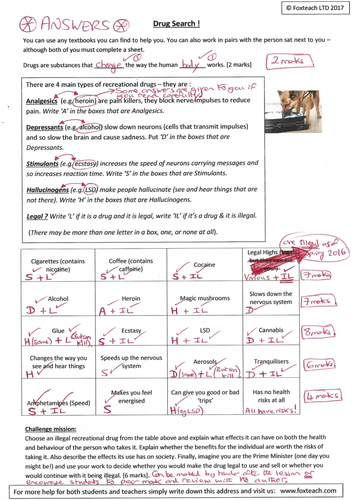 © Foxteach LTD 2017
ANSWERS
Drug Search !
You can use any textbooks you can find to help you. You can also work in pairs with the person sat next to you –
although both of you must complete a sheet.
Drugs are substances that change the way the human body works. [2 marks]
2 marks
There are 4 main types of recreational drugs – they are :
Some answers are given to you if
you read carefully!
Analgesics (e.g. heroin) are pain killers, they block nerve/impulses to reduce
pain. Write 'A' in the boxes that are Analgesics.
Depressants (e.g. alcohol) slow down neurons (cells that transmit impulses)
and so slow the brain and cause sadness. Put 'D' in the boxes that are
Depressants.
Stimulants (e.g. ecstasy) increases the speed of neurons carrying messages and
so increases reaction time. Write 'S' in the boxes that are Stimulants.
Hallucinogens (e.g. LSD) make people hallucinate (see and hear things that
are not there). Write 'H' in the boxes that are Hallucinogens.
Legal ? Write 'L' if it is a drug and it is legal, write 'IL' if it's a drug & it is illegal.
(There may be more than one letter in a box, one, or none at all).
are illegal as of
2016
Cigarettes (contains
nicotine)
S + L
Coffee (contains
caffeine)
S + L
Cocaine
S + IL
Legal Highs
Various + IL
7 marks
Alcohol
D + L
Heroin
A + IL
Magic mushrooms
H + IL
Slows down the
nervous system
D
7 marks
Glue
H (some) + L (But can
kill)
Ecstasy
S + IL
LSD
H + IL
Cannabis
D + IL
8 marks
Changes the way you
see and hear things
H
Speeds up the nervous
system
S
Aerosols
D (some) + L (But can
kill)
Tranquilisers
D + IL
6 marks
Amphetamines (Speed)
S + IL
Makes you feel
energised
S
Can give you good or bad
'trips'
H (eg LSD)
Has no health
risks at all
All have risks!
4 marks
Challenge mission:
Choose an illegal recreational drug from the table above and explain what effects it can have on both the health
and behaviour of the person who takes it. Explain whether the benefits for the individual are worth the risks of
taking it. Also describe the effects its use has on society. Finally, imagine you are the Prime Minister (one day you
might be!) and use your work to decide whether you would make the drug legal to use and sell or whether you
would continue with it being illegal. [6 marks]. Can be marked by teacher after the lesson or
encourage students to peer mark and review with the author.
For more help for both students and teachers simply write down this address and visit us: www.foxteach.com